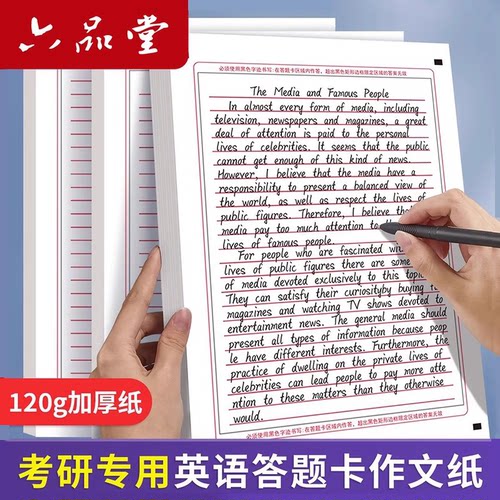 六品堂
必须使用黑色字迹书写:在答题卡区域内作答,超出黑色矩形边框限定区域的答案无效
The Media and Famous People
In almost every form of media, including
television, newspapers and magazines, a great
deal of attention is paid to the personal
lives of celebrities. It seems that the public
cannot get enough of this kind of news.
However, I believe that the media have a
responsibility to present a balanced view of
the world, as well as respect the lives of
public figures. Therefore, I believe that
media pay too much attention to the
lives of famous people.
For people who are fascinated with
lives of public figures there are some
of media devoted exclusively to this topic
They can satisfy their curiosityby buying
magazines and watching TV shows devoted to
entertainment news. The general media should
present all types of information because peop
le have different interests. Furthermore, the
practice of dwelling on the private lives of
celebrities can lead people to pay more atte
ntion to these matters than they otherwise
would.
必须使用黑色字迹书写:在答题卡区域内作答,超出黑色矩形边框限定区域的答案无效
120g加厚纸
考研专用英语答题卡作文纸